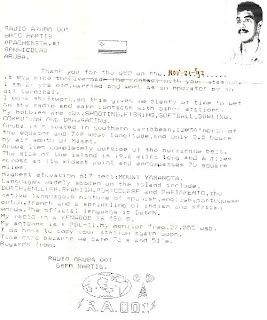 RADIO ARUBA 001
GARY MARTIS
APACHESTR. #1
SAN NICOLAS
ARUBA.
Thank you for the QSO on the, Nov/21/92
it was nice to have made the contact with your station.
I am 21 yrs old, married and work as an operator by an
oil terminal.
I work shiftwork, so this gives me plenty of time to get
on the radio and make contacts with other stations.
My hobbies are :DX, SHOOTING, FISHING, SOFTBALL, BOWLING,
COMPUTING AND DRAGRACING.
Aruba is situated in southern caribbean, north of
the equator and west longitude, and only 2.5 hours
by air north of Miami.
Aruba lies completely outside of the hurricane belt.
The size of the island is 19.6 miles long and 6 miles
across at its widest point and encompasses 70 square
miles.
Highest elevation 617 feet: MOUNT YAMANOTA.
languages widely spoken on the island include,
DUTCH, ENGLISH, SPANISH, PORTUGUESE and PAPIAMENTO, the
native language, a mixture of spanish, english, portuguese
dutch, french and a sprinkling of indian and african
words. The official language is Dutch.
My radio is a KENWOOD
My antenna is a PDL-II, my monitor freq. 27.
I do hope to copy your station again soon.
Take care because we care 73's and 51's.
Regards from:
RADIO ARUBA 001
GARY MARTIS.
R.A.001